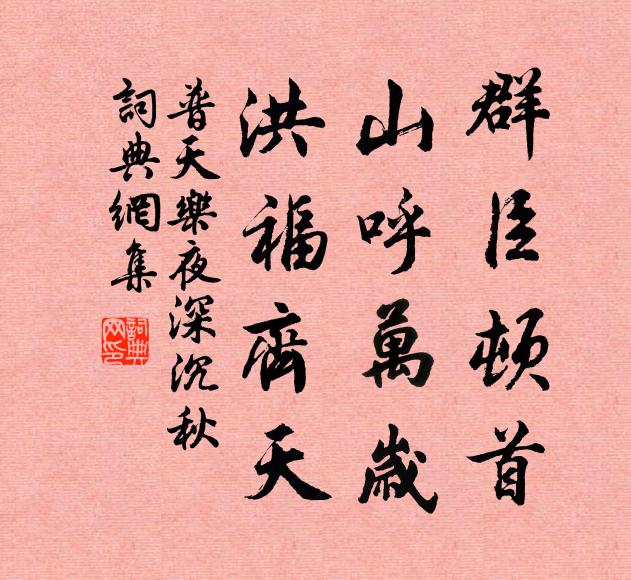 群臣頓首
山呼萬歲
洪福齊天
普天樂夜深沉秋
詞典網集
詞典
网印